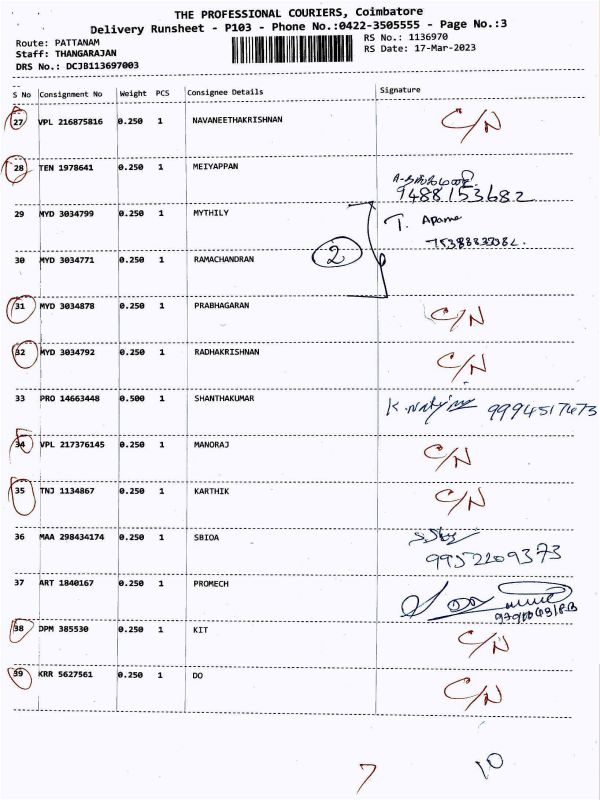 THE PROFESSIONAL COURIERS, Coimbatore
Delivery Runsheet - P103 - Phone No.:0422-3505555 - Page No.:3
Route: PATTANAM
RS No.: 1136970
Staff: THANGARAJAN
RS Date: 17-Mar-2023
DRS No.: DCJB113697003
S No Consignment No Weight PCS Consignee Details Signature
27 VPL 216875816 0.250 1 NAVANEETHAKRISHNAN C/N
28 TEN 1978641 0.250 1 MEIYAPPAN
9488153682
29 MYD 3034799 0.250 1 MYTHILY T. Aparna
2
30 MYD 3034771 0.250 1 RAMACHANDRAN
31 MYD 3034878 0.250 1 PRABHAGARAN C/N
32 MYD 3034792 0.250 1 RADHAKRISHNAN C/N
33 PRO 14663448 0.500 1 SHANTHAKUMAR 9994517673
34 VPL 217376145 0.250 1 MANORAJ C/N
35 TNJ 1134867 0.250 1 KARTHIK C/N
36 MAA 298434174 0.250 1 SBIOA
9952209373
37 ART 1840167 0.250 1 PROMECH
38 DPM 385530 0.250 1 KIT C/N
39 KRR 5627561 0.250 1 DO C/N
7 10